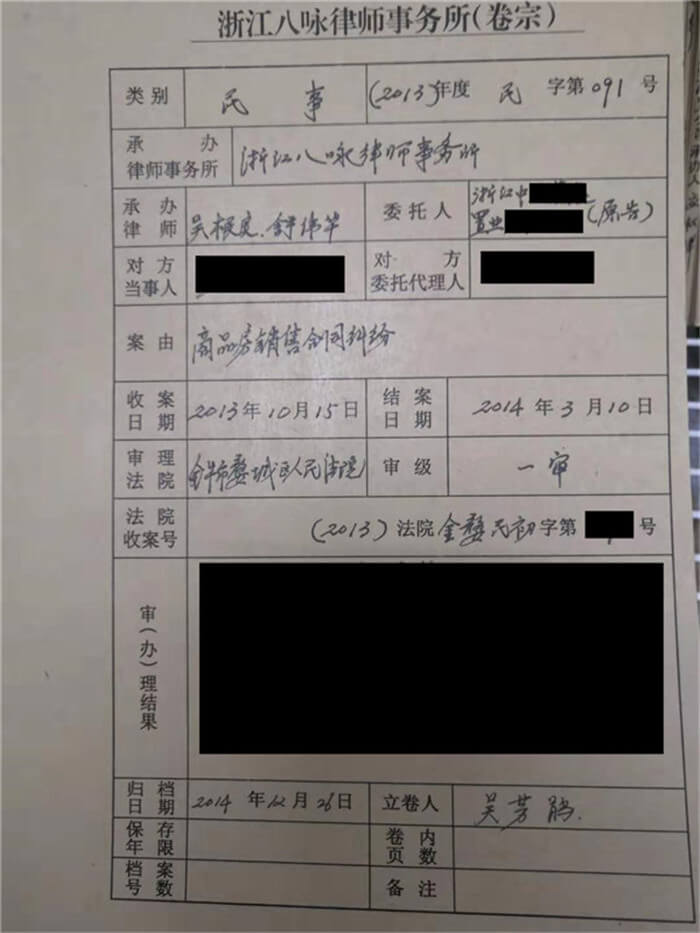 浙江八咏律师事务所（卷宗）
类别 民事 （2013）年度 民 字第 091 号
承办
律师事务所 浙江八咏律师事务所
承办 委托人 浙江中
律师 吴根良、舒伟华 置业 （原告）
对方 对方
当事人 委托代理人
案由 商品房销售合同纠纷
收案 结案
日期 2013年10月15日 日期 2014年3月10日
审理
法院 金华市婺城区人民法院 审级 一审
法院
收案号 （2013）法院 金婺民初 字第 号
审（办）理结果
归档
日期 2014年12月26日 立卷人 吴芳
保存 卷内
年限 页数
档案
号数 备注